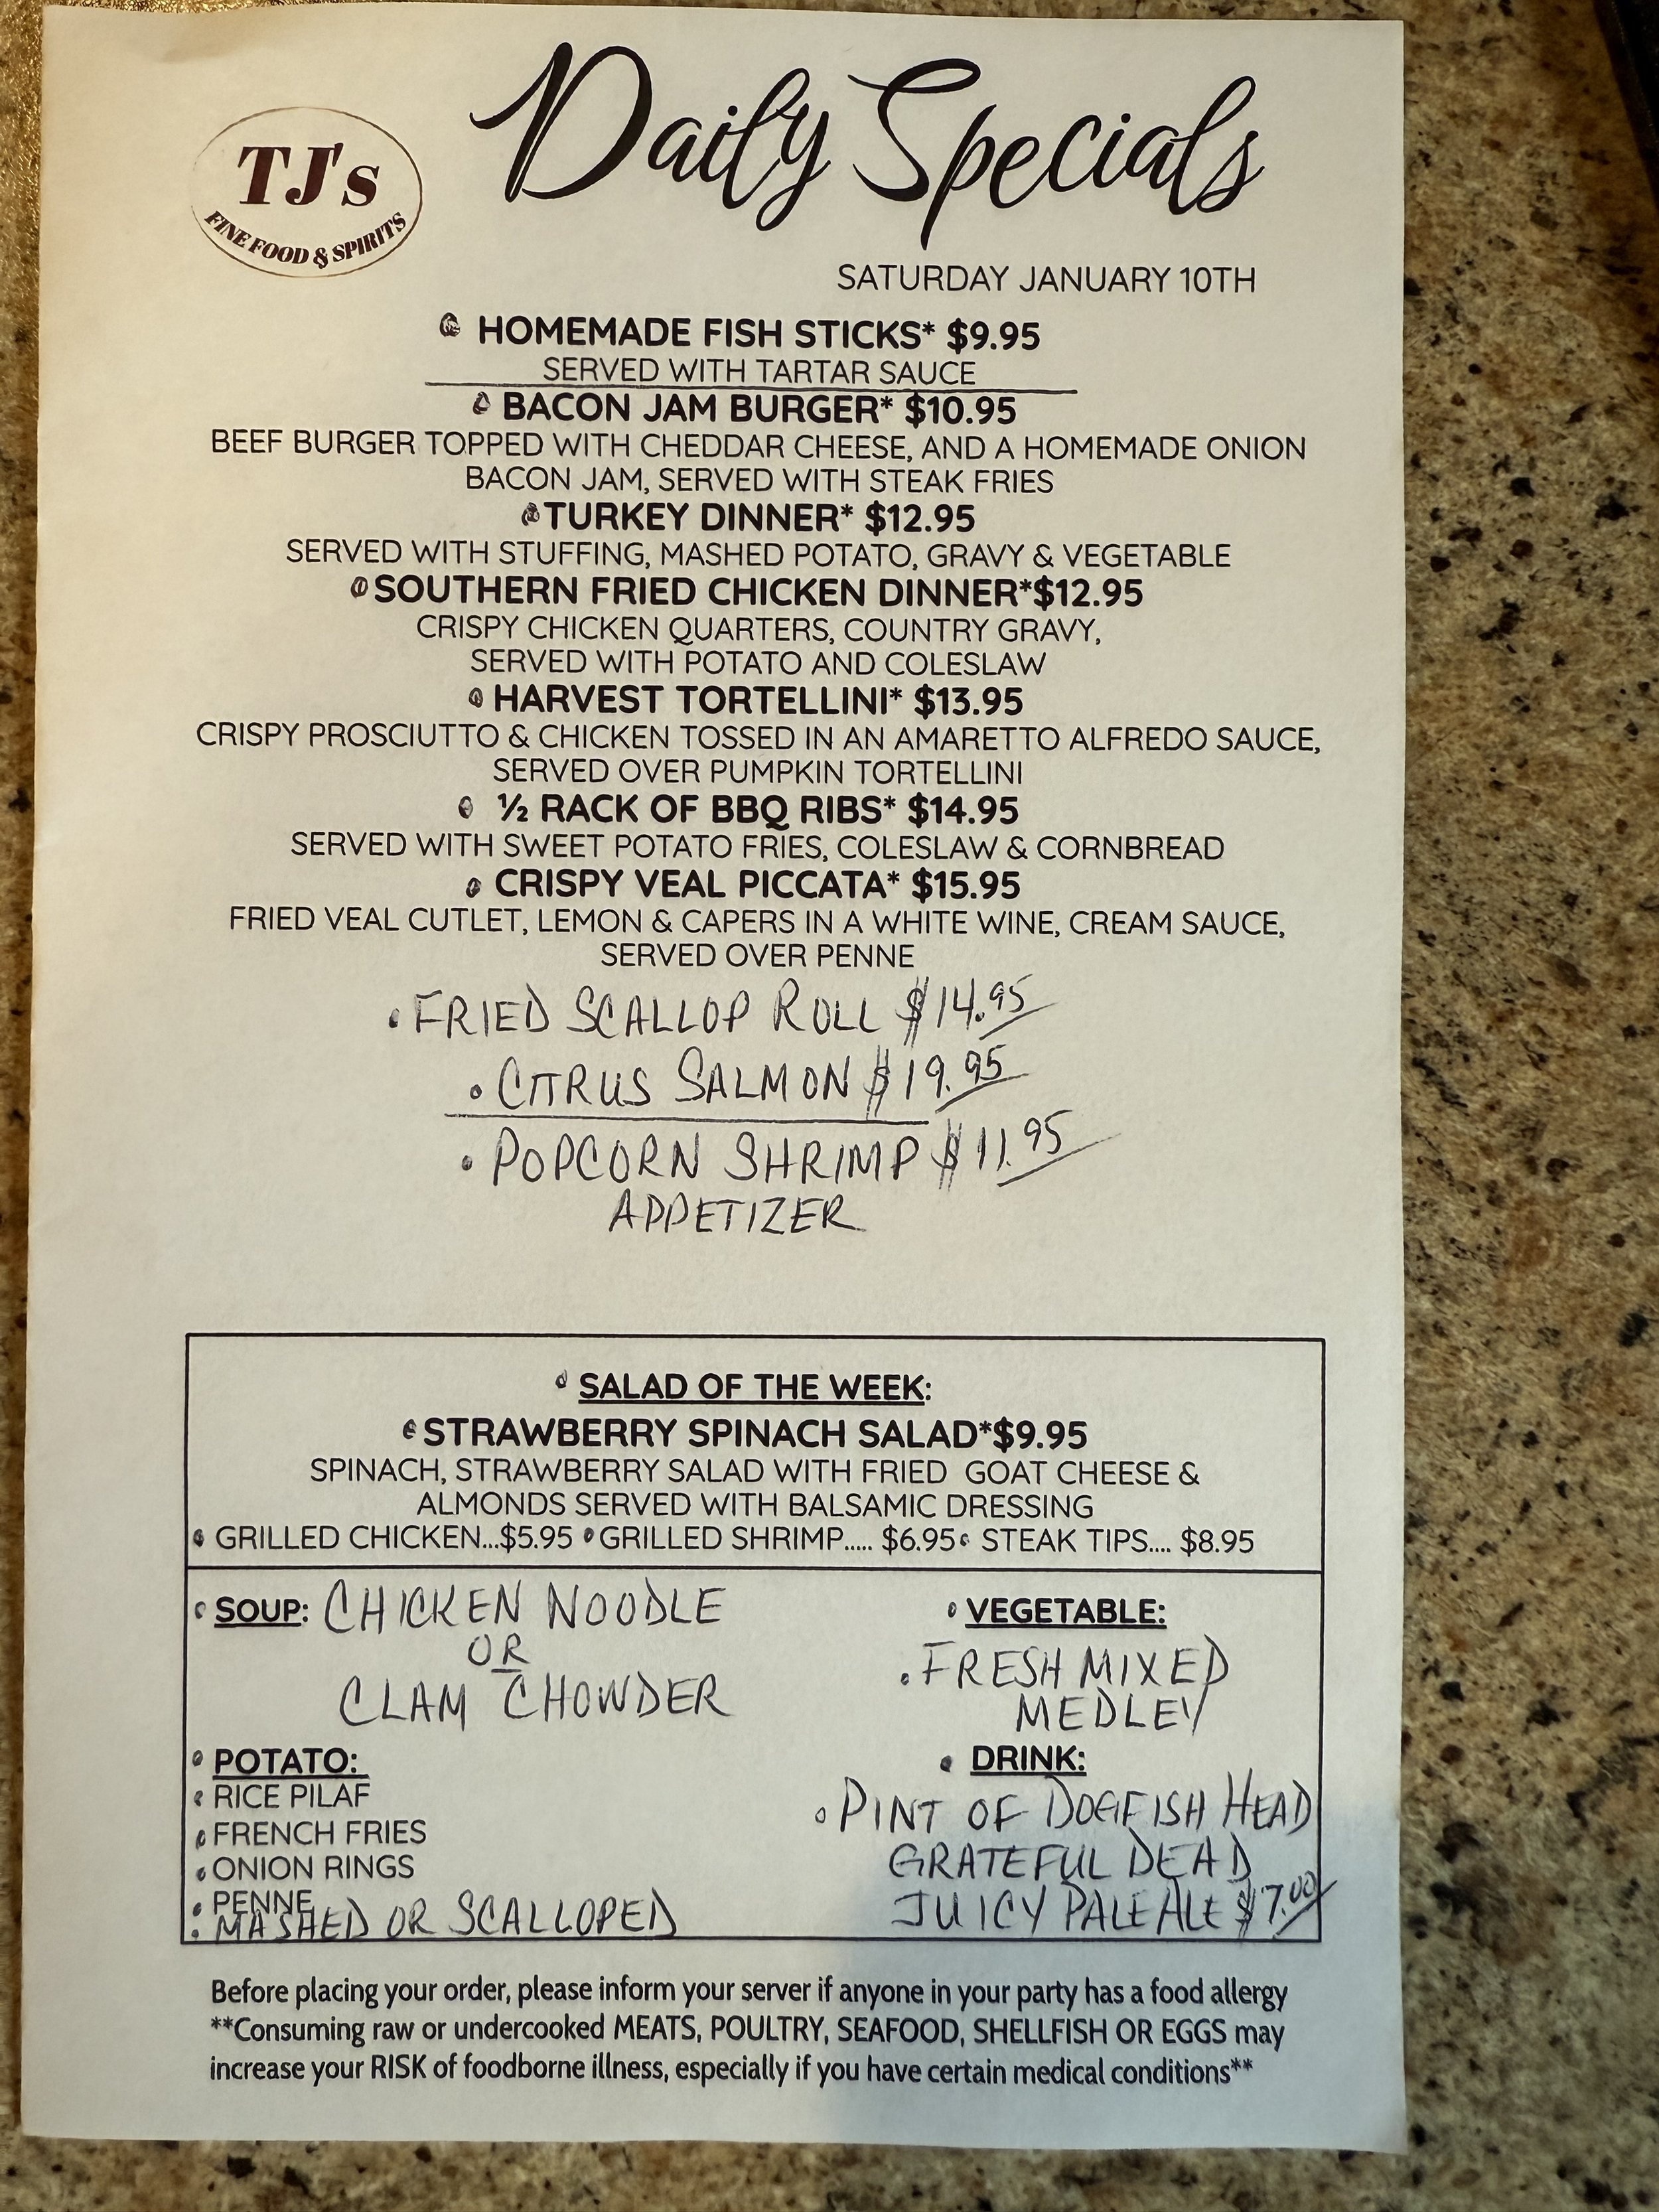 TJ's
FINE FOOD & SPIRITS
Daily Specials
SATURDAY JANUARY 10TH
HOMEMADE FISH STICKS* $9.95
SERVED WITH TARTAR SAUCE
BACON JAM BURGER* $10.95
BEEF BURGER TOPPED WITH CHEDDAR CHEESE, AND A HOMEMADE ONION
BACON JAM, SERVED WITH STEAK FRIES
TURKEY DINNER* $12.95
SERVED WITH STUFFING, MASHED POTATO, GRAVY & VEGETABLE
SOUTHERN FRIED CHICKEN DINNER*$12.95
CRISPY CHICKEN QUARTERS, COUNTRY GRAVY,
SERVED WITH POTATO AND COLESLAW
HARVEST TORTELLINI* $13.95
CRISPY PROSCIUTTO & CHICKEN TOSSED IN AN AMARETTO ALFREDO SAUCE,
SERVED OVER PUMPKIN TORTELLINI
½ RACK OF BBQ RIBS* $14.95
SERVED WITH SWEET POTATO FRIES, COLESLAW & CORNBREAD
CRISPY VEAL PICCATA* $15.95
FRIED VEAL CUTLET, LEMON & CAPERS IN A WHITE WINE, CREAM SAUCE,
SERVED OVER PENNE
• FRIED SCALLOP ROLL $14.95
• CITRUS SALMON $19.95
• POPCORN SHRIMP $11.95
APPETIZER
• SALAD OF THE WEEK:
• STRAWBERRY SPINACH SALAD*$9.95
SPINACH, STRAWBERRY SALAD WITH FRIED GOAT CHEESE &
ALMONDS SERVED WITH BALSAMIC DRESSING
• GRILLED CHICKEN...$5.95 • GRILLED SHRIMP..... $6.95 • STEAK TIPS.... $8.95
• SOUP: CHICKEN NOODLE
OR
CLAM CHOWDER
• VEGETABLE:
• FRESH MIXED
MEDLEY
• POTATO:
• RICE PILAF
• FRENCH FRIES
• ONION RINGS
• PENNE
• MASHED OR SCALLOPED
• DRINK:
• PINT OF DOGFISH HEAD
GRATEFUL DEAD
JUICY PALE ALE $7.00
Before placing your order, please inform your server if anyone in your party has a food allergy
**Consuming raw or undercooked MEATS, POULTRY, SEAFOOD, SHELLFISH OR EGGS may
increase your RISK of foodborne illness, especially if you have certain medical conditions**